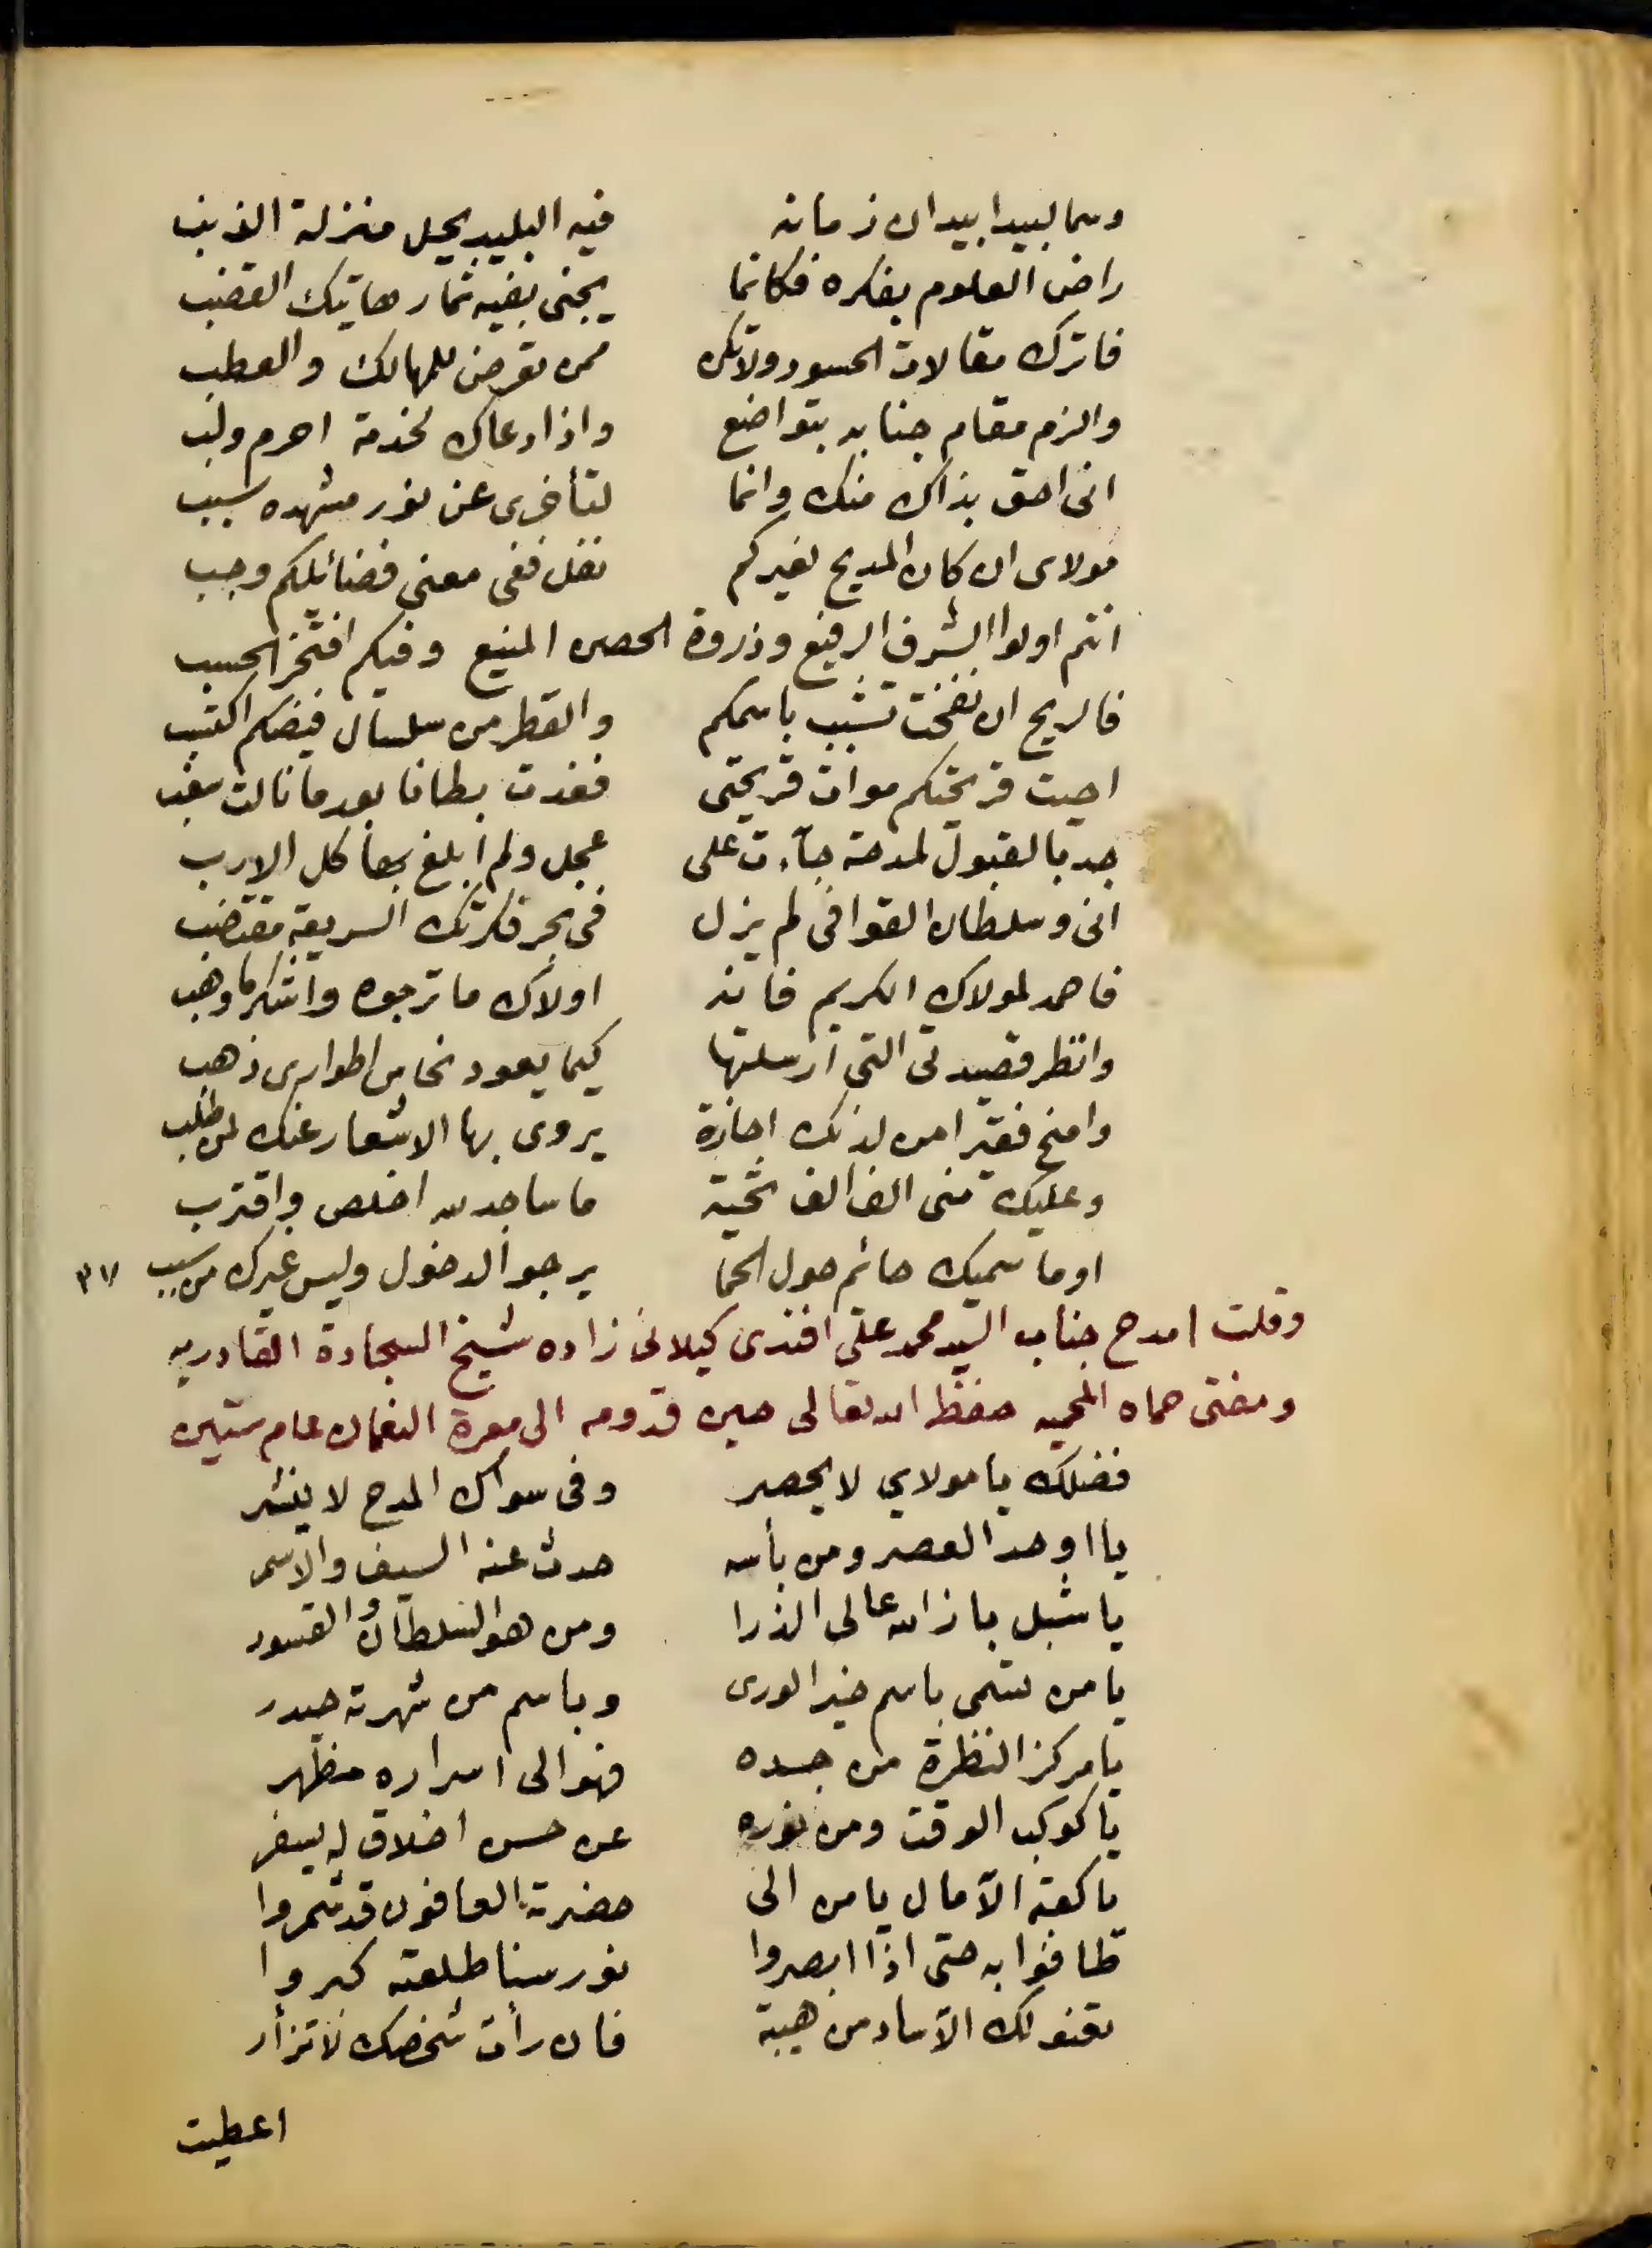 وسما لبيدا بيدان زمانه فيه البليد يحل منزلة الذنب
راض العلوم بفكره فكانما يجنى بفيه ثمار هاتيك القضب
فاترك مقالات الحسود ولا تكن ممن تعرض للمهالك والعطب
والزم مقام جنابه بتواضع واذا دعاك لخدمة احرم ولب
انى احق بذاك منك وانما لتأخرى عن نور مشهده سبب
مولاى ان كان المديح لغيركم نفل ففى معنى فضائلكم وجب
انتم اولوا الشرف الرفيع وذروة الحصن المنيع وفيكم افتخر الحسب
فالريح ان نفحت تشبب باسمكم والقطر من سلسال فيضكم اكتسب
احيت قريحتكم موات قريحتى فغدت بطانا بعد ما نالت سغب
جد بالقبول لمدحة جآءت على عجل ولم ابلغ بها كل الارب
انى وسلطان القوافى لم يزل فى بحر فكرتك السريعة مقتضب
فاحمد لمولاك الكريم فانه اولاك ما ترجوه واشكر ما وهب
وانظر قصيدتى التى ارسلتها كيما يعود نحاس اطوارى ذهب
وامنح فقيرا من لدنك اجازة يروى بها الاشعار عنك لمن طلب
وعليك منى الف الف تحية ما ساجد لله اخلص واقترب
او ما سميك حائم حول الحما يرجو الدخول وليس غيرك من سبب ٣٧
وقلت امدح جناب السيد محمد على افندى كيلانى زاده شيخ السجادة القادريه
ومفتى حماه المحميه حفظ الله تعالى حين قدومه الى معرة النعمان عام ستين
فضلك يا مولاي لا يحصر وفى سواك المدح لا ينشر
يا اوحد العصر ومن بأسه حدث عنه السيف والاسمر
يا شبل باز الله عالى الذرا ومن هو السلطان والقسور
يا من تسمى باسم خير الورى وباسم من شهرته حيدر
يا مركز النظرة من جده فهو الى اسراره مظهر
يا كوكب الوقت ومن نوره عن حسن اخلاق له يسفر
يا كعبة الآمال يا من الى حضرته العافون قد شمروا
طافوا به حتى اذا ابصروا نور سنا طلعته كبروا
تعنو لك الآساد من هيبة فان رأت شخصك لا تزأر
اعطيت